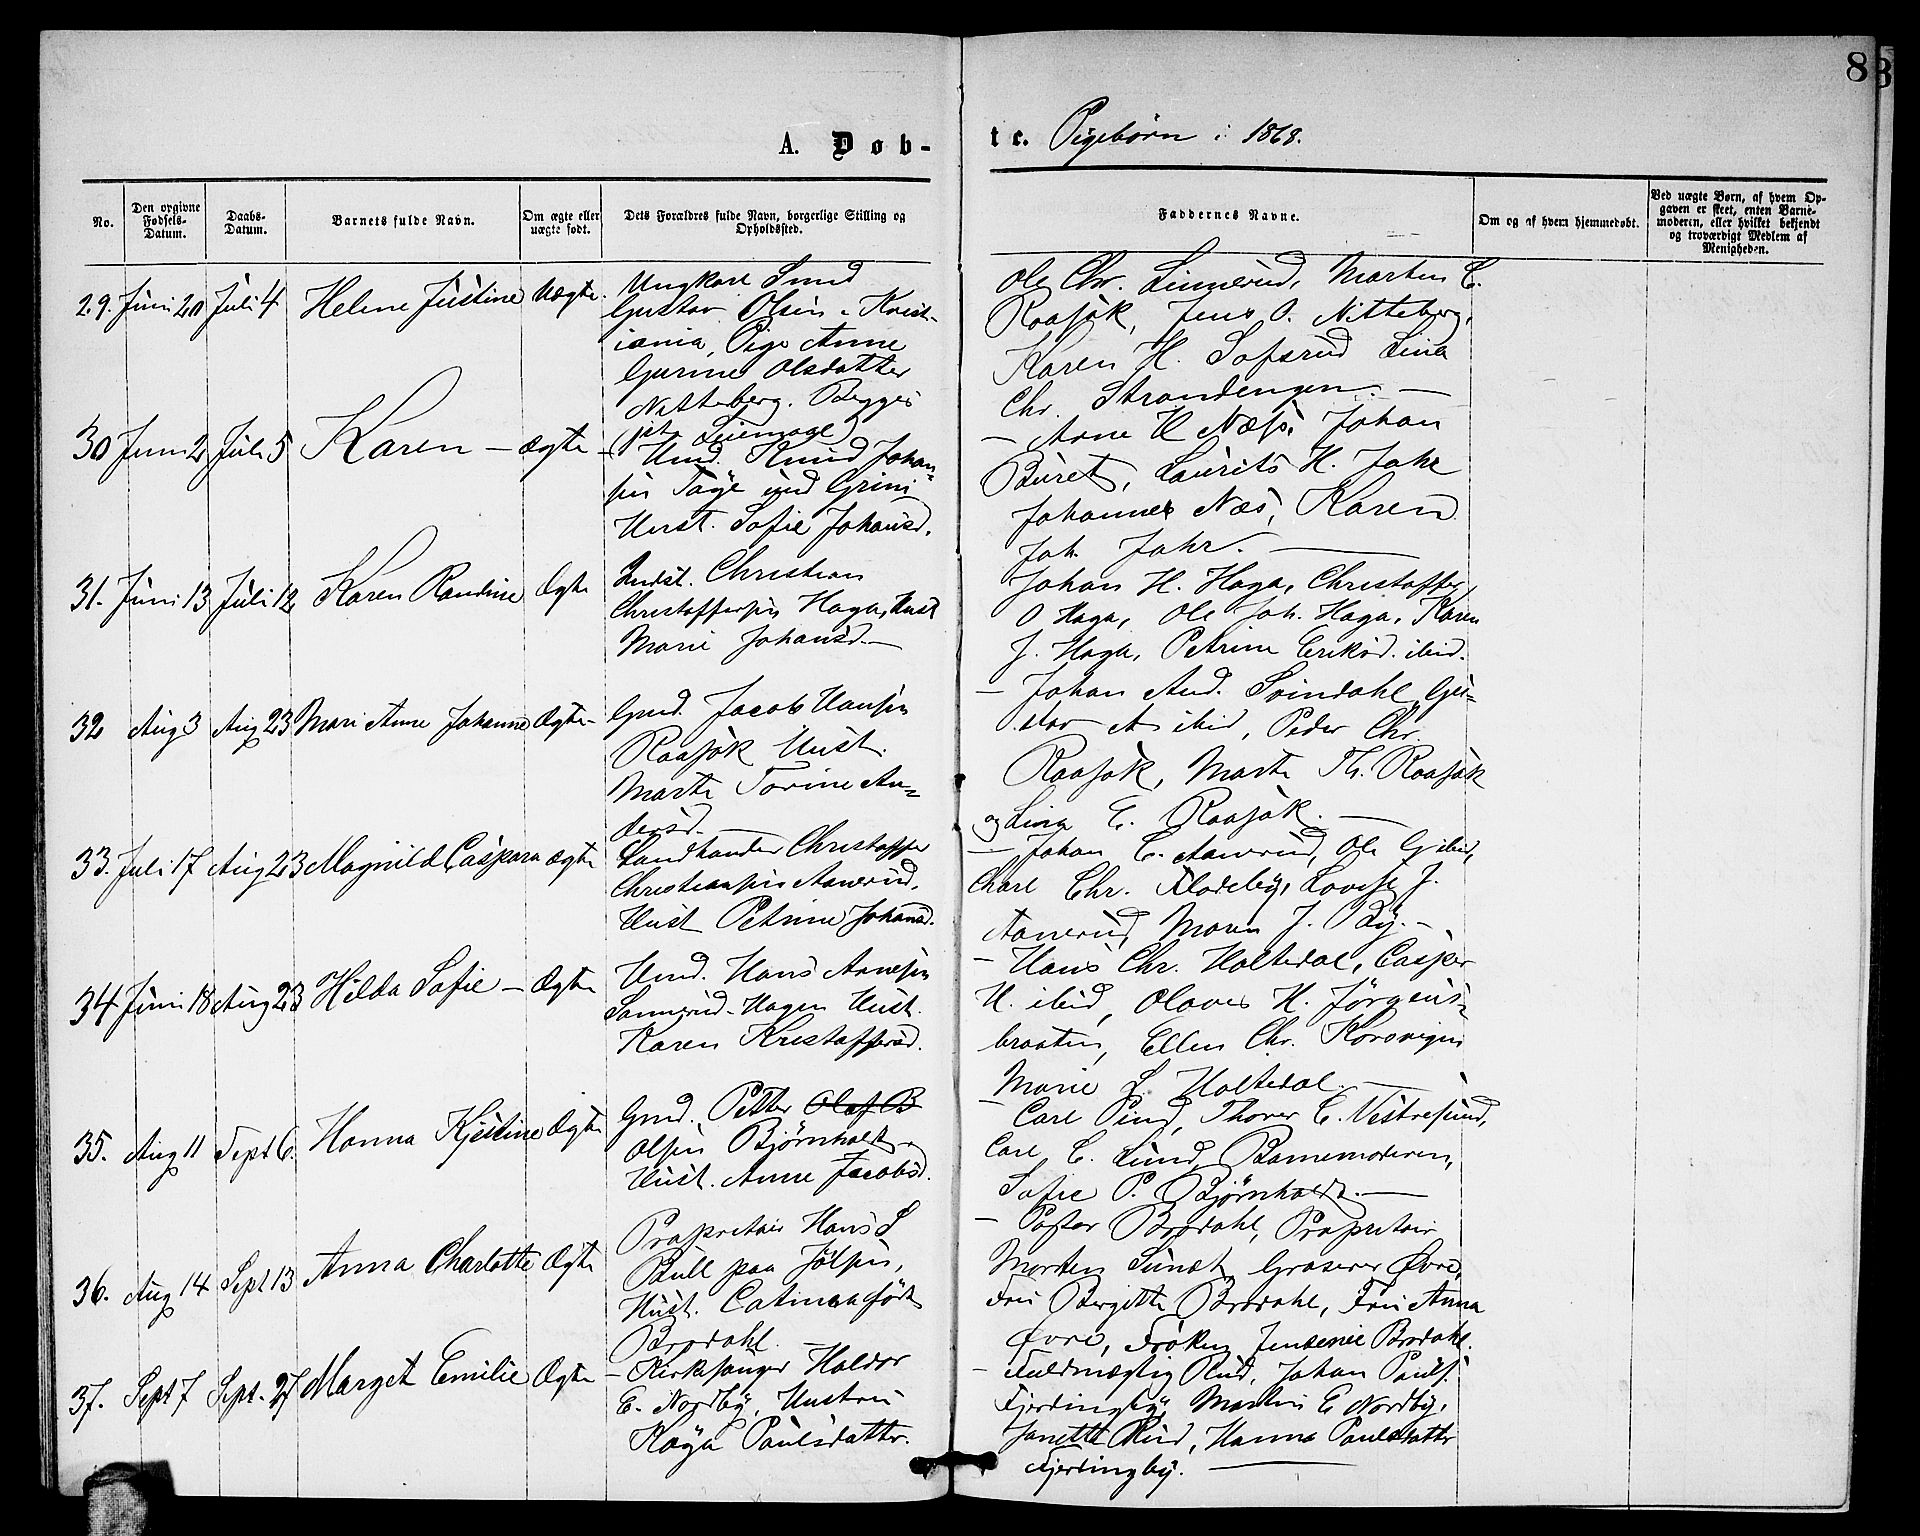 8
A. Døb-
te. Pigebørn i 1868.
No.
Den opgivne Fødsels-Datum.
Daabs-Datum.
Barnets fulde Navn.
Om ægte eller uægte født.
Dets Forældres fulde Navn, borgerlige Stilling og Opholdssted.
Faddernes Navne.
Om og af hvem hjemmedøbt.
Ved uægte Børn, af hvem Opgaven er skeet, enten Barnemoderen, eller hvilket bekjendt og troværdigt Medlem af Menigheden.
29. Juni 20 Juli 4. Helene Justine Uægte.
Ungkarl Smed
Gustav Olsen i Krist-
iania, Pige Anne
Gurine Olsdatter
Nitteberg. Begges
Leiermaal
Ole Chr. Linnerud, Marten E.
Raasøk, Jens O. Nitteberg,
Karen H. Lofsrud Lina
Chr. Strandengen. —
30 Juni 2 Juli 5 Karen — ægte —
Hmd. Knud Johan-
sen Tøye und Grini
Hust. Sofie Johansd.
— Arne H Næss, Johan
Buret, Laurits H. Jahr
Johannes Næs, Karen
Joh. Jahr. —
31. Juni 13 Juli 12 Karen Randine Ægte
Indst. Christian
Christoffersen Haga, Hust
Marie Johansd. —
Johan H. Haga, Christoffer
O Haga, Ole Joh. Haga, Karen
J. Haga, Petrine Eriksd. ibid.
32 Aug 3 Aug 23 Mari Anne Johanne Ægte —
Gmd. Jacob Hansen
Raasøk Hust.
Marte Torine An-
dersd. —
— Johan And. Svindahl, Gu-
stav A ibid, Peder Chr.
Raasøk, Marte Th. Raasøk
og Lina E. Raasøk. —
33. Juli 17 Aug 23 Magnild Caspara ægte
Landhandler Christoffer
Christiansen Aanerud,
Hust Petrine Johansd.
— Johan C. Aanerud, Ole G ibid,
Carl Chr. Flateby, Lovise J.
Aanerud, Maren J. By. —
34 Juni 18 Aug 23 Hilda Sofie — Ægte
Hmd. Hans Arnesen
Sannerud-Hagen Hust.
Karen Kristoffersd.
— Hans Chr. Holtedal, Casper
H. ibid, Olaves H. Jørgens-
braaten, Ellen Chr. Korsvigen
Marie L Holtedal. —
35. Aug 11 Sept 6. Hanna Kjestine Ægte
Gmd. Petter Olaf B
Olsen Bjørnholt,
Hust. Anne Jacobsd.
— Carl Pind, Thorer E. Vestresund,
Carl E. Sund, Barnemoderen,
Sofie P. Bjørnholt. —
36. Aug 14 Sept 13 Anna Charlotte Ægte
Proprietair Hans S
Bull paa Jølsen,
Hust. Catinca født
Brodahl
— Pastor Brodahl, Proprietair
Morten Sunét, Groserer Øvre,
Fru Bergitte Brodahl, Fru Anna
Øvre, Frøken Jensenie Brodahl.
37. Sept 7 Sept. 27 Marget Emilie Ægte
— Kirkesanger Haldor
E. Nordby, Hustru
Kaya Paulsdatter.
— Fuldmægtig Rud, Johan Pauls.
Fjerdingby, Martin E Nordby,
Janette Rud, Hanna Paulsdatter
Fjerdingby. —